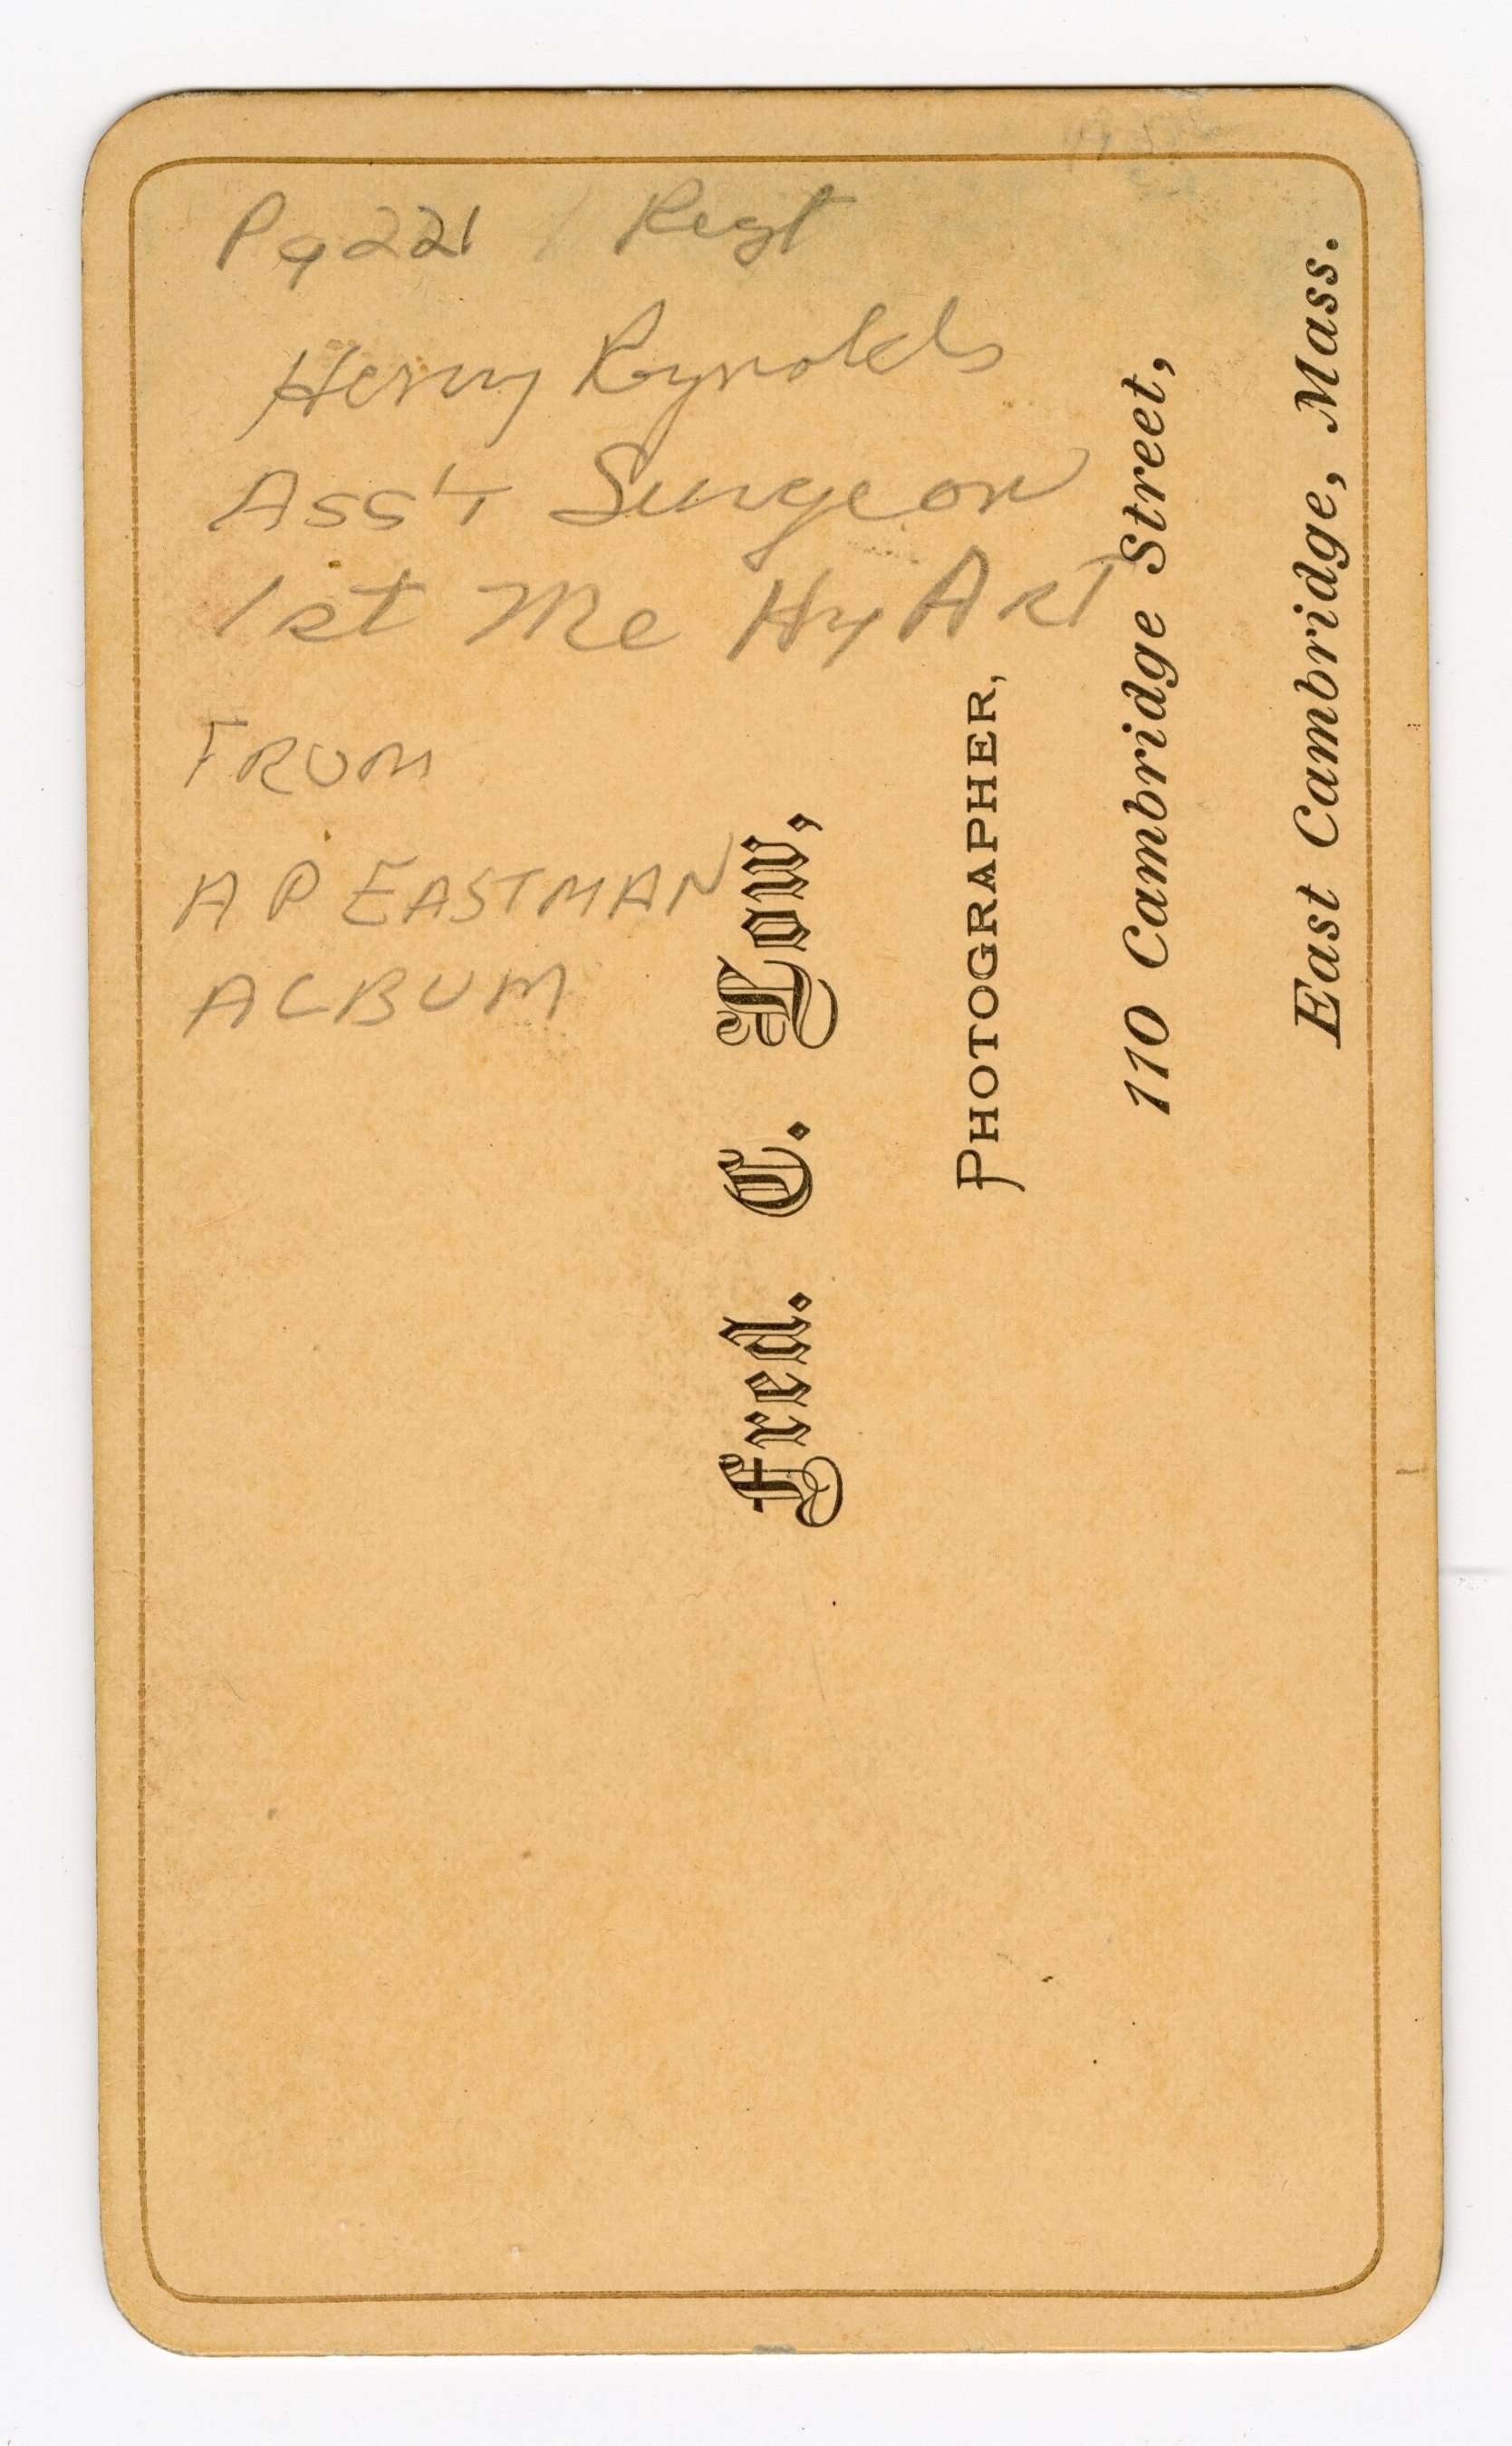 Pg 221 / Regt
Henry Rynolds
Ass't Surgeon
1st Me Hy Art
FROM
A P EASTMAN
ALBUM
Fred. C. Low,
PHOTOGRAPHER,
110 Cambridge Street,
East Cambridge, Mass.